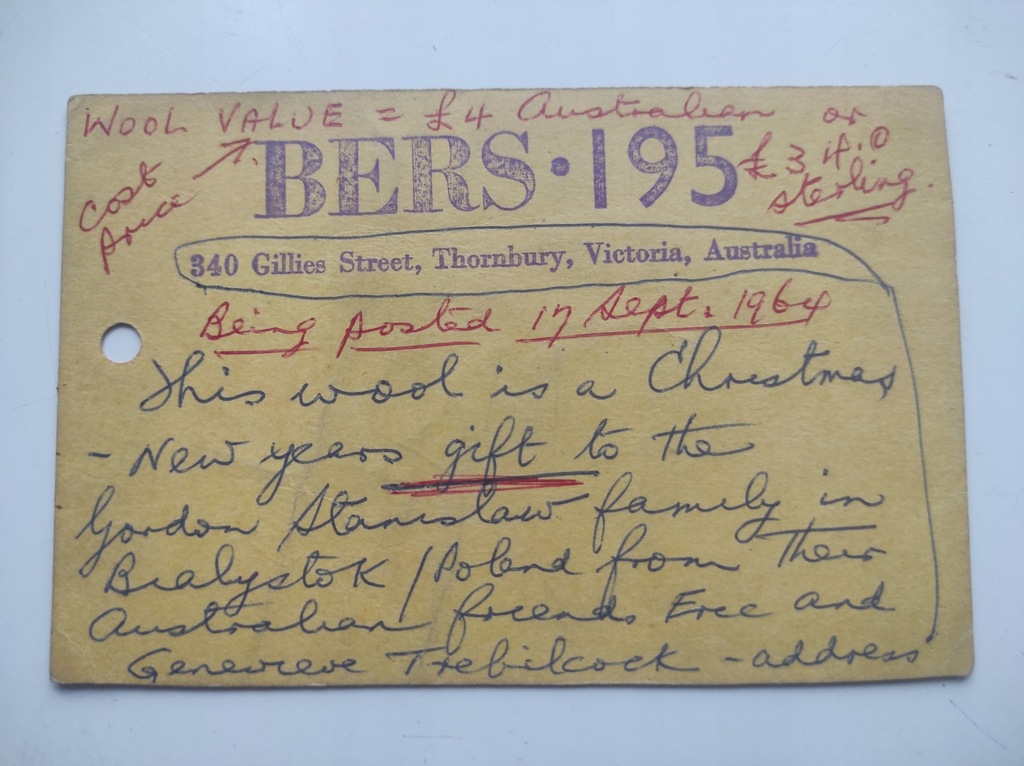 WOOL VALUE = £4 Australian or
£3 4.0
sterling.
Cost
price
BERS · 195
340 Gillies Street, Thornbury, Victoria, Australia
Being posted 17 Sept. 1964
This wool is a Christmas
- New years gift to the
Gordon Stanislaw family in
Bialystok / Poland from their
Australian friends Eric and
Genevieve Trebilcock - address